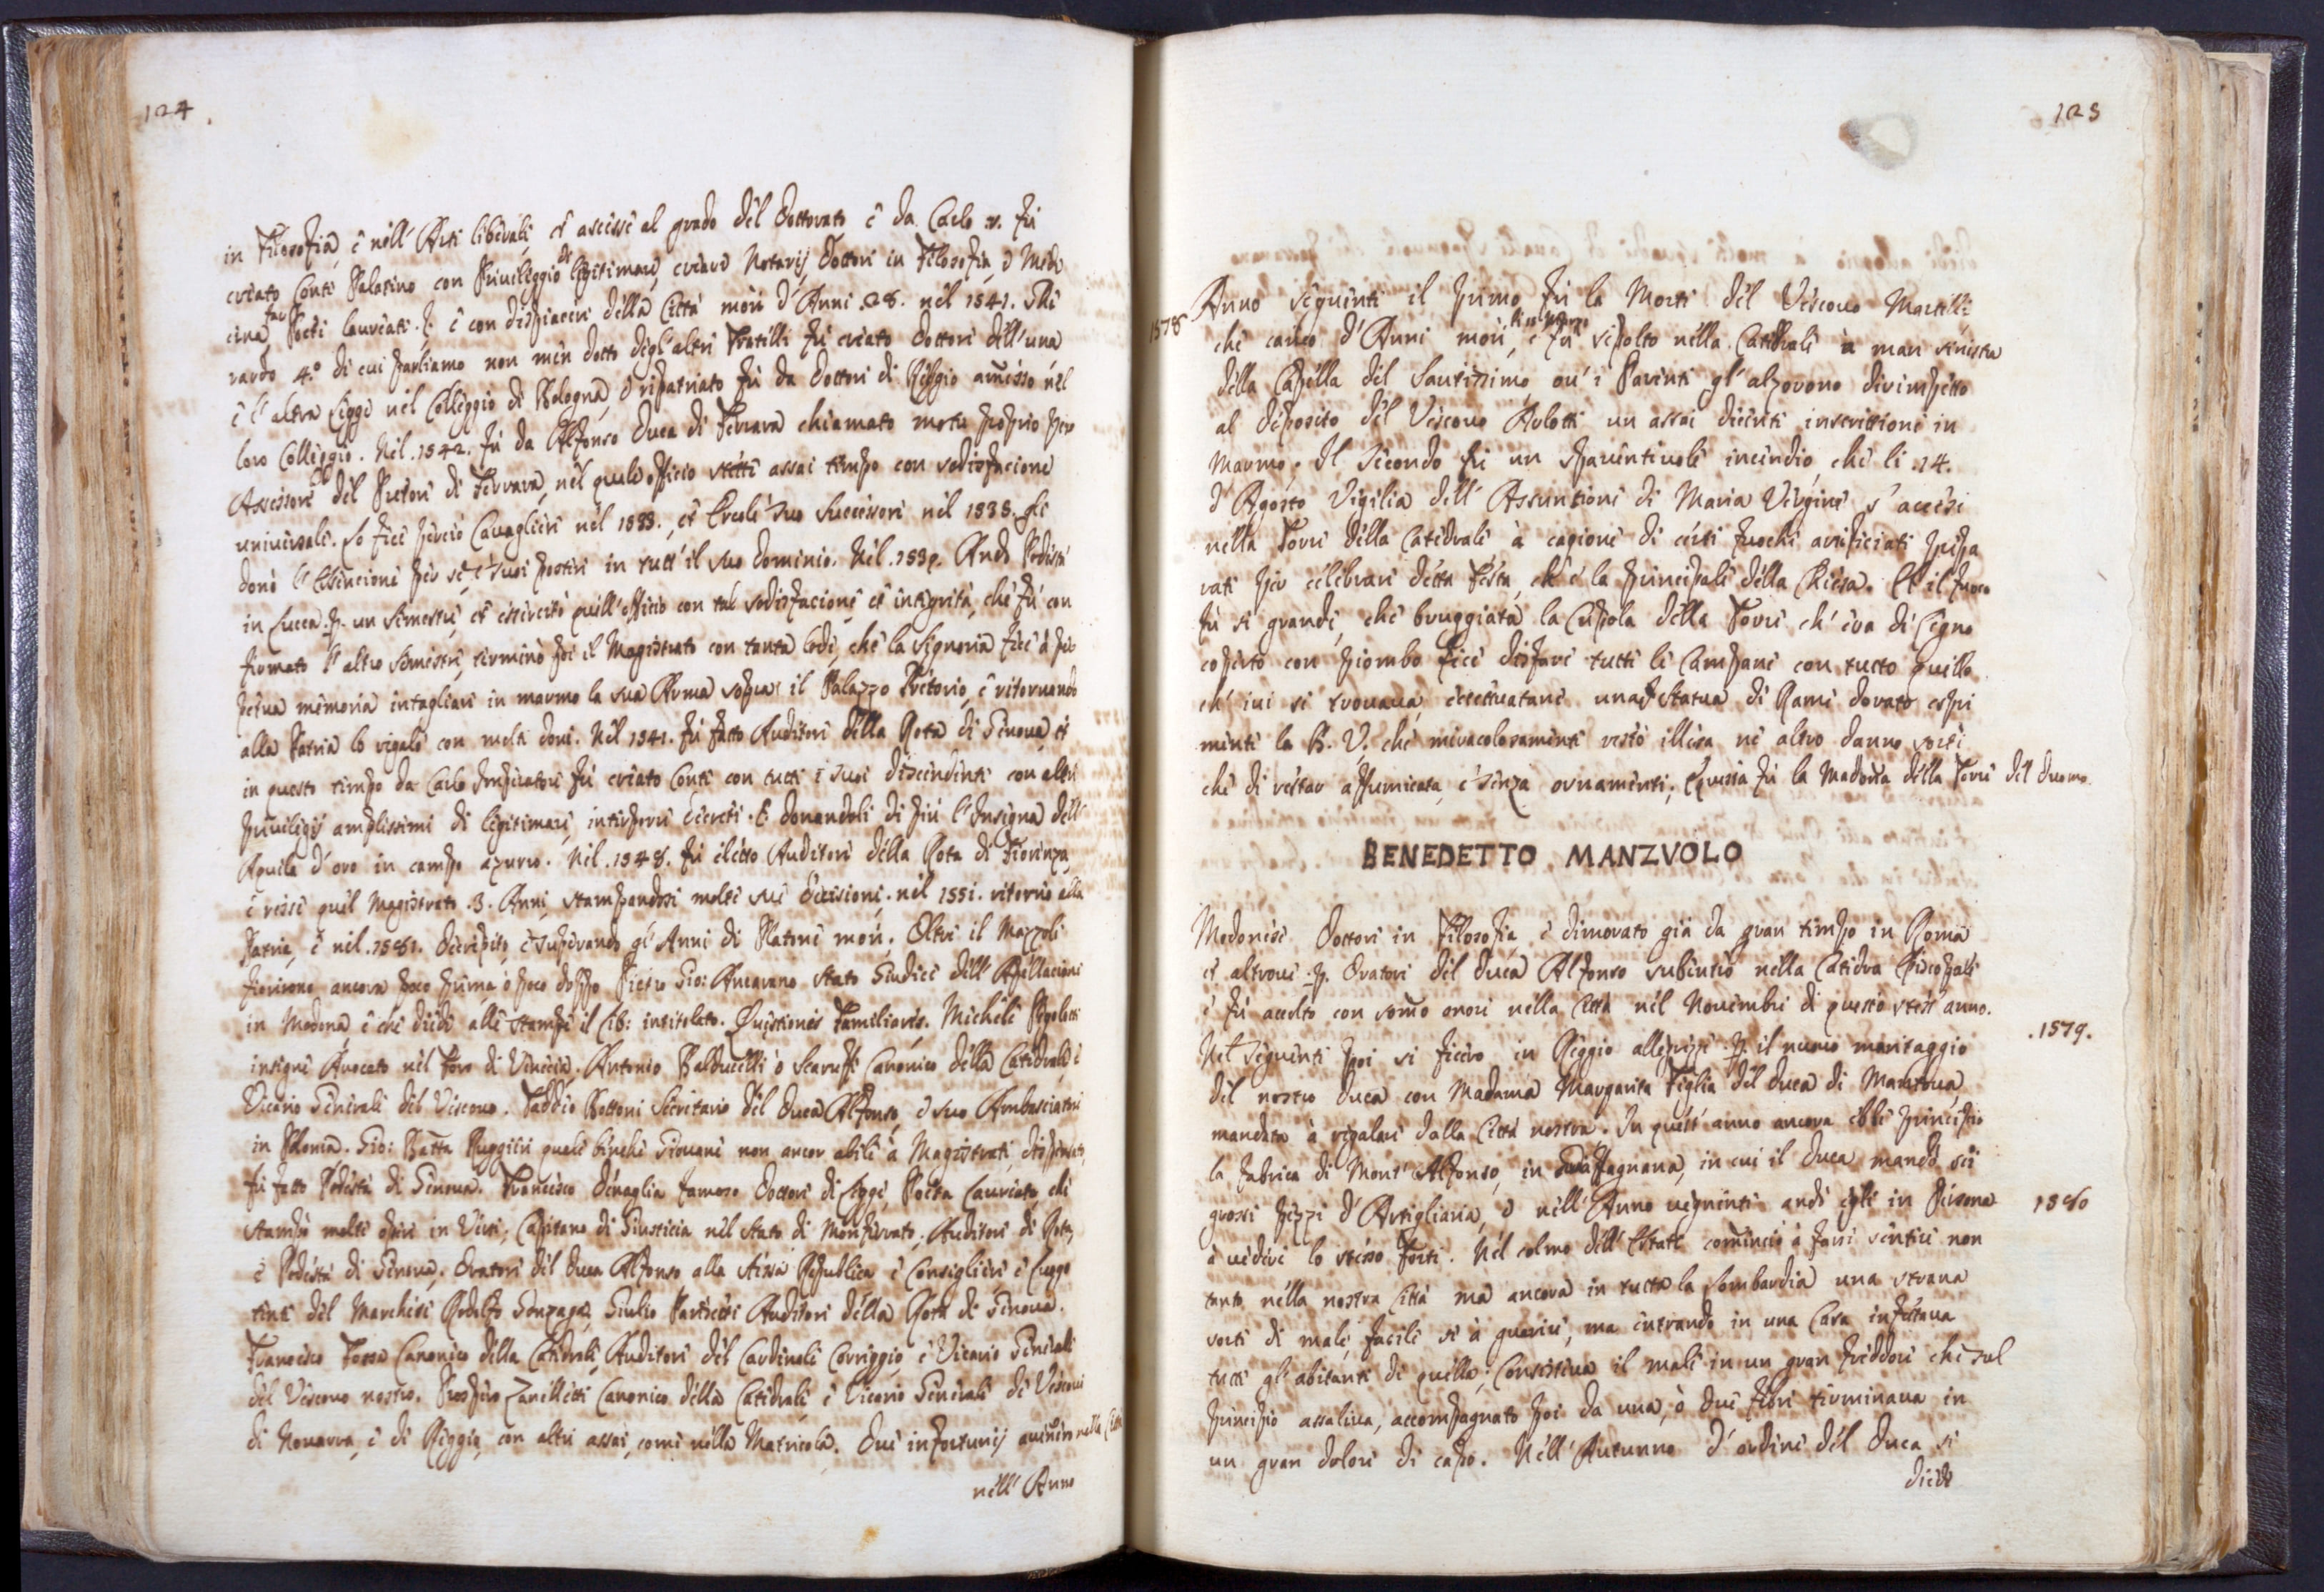 124
in Filosofia, e nell' Arti liberali, et ascese al grado del Dottorato, e da Carlo v. fù
creato Conte Palatino con Priuileggio di legitimare, creare Notarij, Dottori in Filosofia, e Medi
cina, far Poeti laureati. e con dispiacere della Città morì d' Anni .28. nel 1541.
rardo 4.º di cui parliamo non men dotto degl' altri Fratelli fù creato Dottore dell' una
e l' altra Legge nel Colleggio di Bologna, e ripatriato fù da Dottori di Reggio amesso nel
loro Colleggio. Nel .1542. fù da Alfonso Duca di Ferrara chiamato motu proprio per
Assessore del Pretore di Ferrara, nel quale officio stette assai tempo con sodisfacione
uniuersale. Lo fece perciò Cauagliere nel 1533., et Ercole suo Successore nel 1535. gli
donò l' Essencione per se, e suoi posteri in tutt' il suo dominio. Nel .1539. Andò Podestà
in Lucca .p. un Semestre, et essercitò quell' officio con tal sodisfacione, et integrità, che fù con
firmato l' altro Semestre, terminò poi il Magistrato con tanta lode, che la Signoria fece à per
petua memoria intagliare in marmo la sua Arma sopra il Palazzo Pretorio, e ritornando
alla Patria lo regalò con molti doni. Nel 1541. fù fatto Auditore della Rota di Genoua, et
in questo tempo da Carlo Imperatore fù creato Conte con tutti i suoi discendenti con altri
priuilegij amplissimi di legitimare, interporre decreti. E donandoli di più l' Insegna dell'
Aquila d' oro in campo azurro. Nel .1548. fù eletto Auditore della Rota di Fiorenza,
e resse quel Magistrato .3. Anni, stampandosi molte sue decisioni. nel 1551. ritornò alla
Patria, e nel .1581. decrepito, e superando gl' Anni di Platone morì. Oltre il Mazzoli
fiorirono ancora poco prima, ò poco doppo Pietro Gio: Ancarano stato Giudice dell' Apellacioni
in Modona, e che diede alle stampe il Lib: intitolato. Questiones Familiares. Michele
insigne Auocato nel Foro di Venecia. Antonio Balduccelli ò Scaruffi Canonico della Catedrale, e
Vicario Generale del Vescouo. Taddeo Bottoni Secretario del Duca Alfonso, e suo Ambasciatore
in Polonia. Gio: Batta Ruggieri quale benche Giouane non ancor abile à Magistrati, dispensato,
fù fatto Podestà di Genoua. Francesco Denaglia famoso Dottore di Legge, Poeta Laureato che
stampò molte opere in Versi; Capitano di Giusticia nel Stato di Monferrato; Auditore di Rota,
e Podestà di Genoua. Oratore del Duca Alfonso alla stessa Republica e Consigliere e Luogo
tente del Marchese Rodolfo Gonzaga, Giulio Parisetti Auditore della Rota di Genoua.
Francesco Fossa Canonico della Catedrale, Auditore del Cardinale Correggio, e Vicario Generale
del Vescouo nostro. Prospero Zanelletti Canonico della Catedrale, e Vicario Generale de Vescoui
di Nouarra, e di Reggio, con altri assai, come nella Matricola. Due infortunij auennero nella Città
nell' Anno
125
1578
Anno seguente il primo fù la Morte del Vescouo Martelli
che carico d' Anni morì, e fù sepolto nella Catedrale à man sinistra
della Capella del Santissimo, ou' i Parenti gl' alzorono dirimpetto
al deposito del Vescouo Arlotti un assai decente inscrittione in
Marmo. Il secondo fù un spauenteuole incendio, che li .14.
d' Agosto Vigilia dell' Assuntione di Maria Vergine s' accese
nella Torre della Catedrale à cagione di certi fuochi arteficiati prepa
rati per celebrare detta Festa, ch' è la principale della Chiesa. Et il fuoco
fù si grande, che bruggiata la Cupola della Torre ch' era di Legno
coperto con piombo fece disfare tutte le Campane con tutto quello
ch' iui si trouaua, eccettuatane una Statua di Rame dorato espri
mente la B. V. che miracolosamente restò illesa ne altro danno sortì
che di restar affumicata, e senza ornamenti; e questa fù la Madona della Torre del Duomo.
BENEDETTO MANZVOLO
Modonese Dottore in Filosofia e dimorato già da gran tempo in Roma
et altroue .p. Oratore del Duca Alfonso subentrò nella Catedra Episcopale
e fù accolto con somo onore nella Città nel Nouembre di questo stess' anno.
.1579.
Nel seguente poi si fecero in Reggio allegrezze .p. il nuouo maritaggio
del nostro Duca con Madama Margarita Figlia del Duca di Mantoua,
mandata à regalare dalla Città nostra. In quest' anno ancora ebbe principio
la fabrica di Mont' Alfonso, in Graffagnana, in cui il Duca mandò sei
grossi pezzi d' Artigliaria, e nell' Anno uegnente andò egli in Persona
1580
à uedere lo stesso Forte. Nel colmo dell' Estate cominciò à farsi sentire non
tanto nella nostra Città ma ancora in tutta la Lombardia una strana
sorte di male, facile si à guarire, ma entrando in una Casa infetaua
tutti gl' abitanti di quella; Consisteua il male in un gran freddore che sul
principio assaliua, accompagnato poi da una, ò due febri terminaua in
un gran dolore di capo. Nell' Autunno d' ordine del Duca si
diede